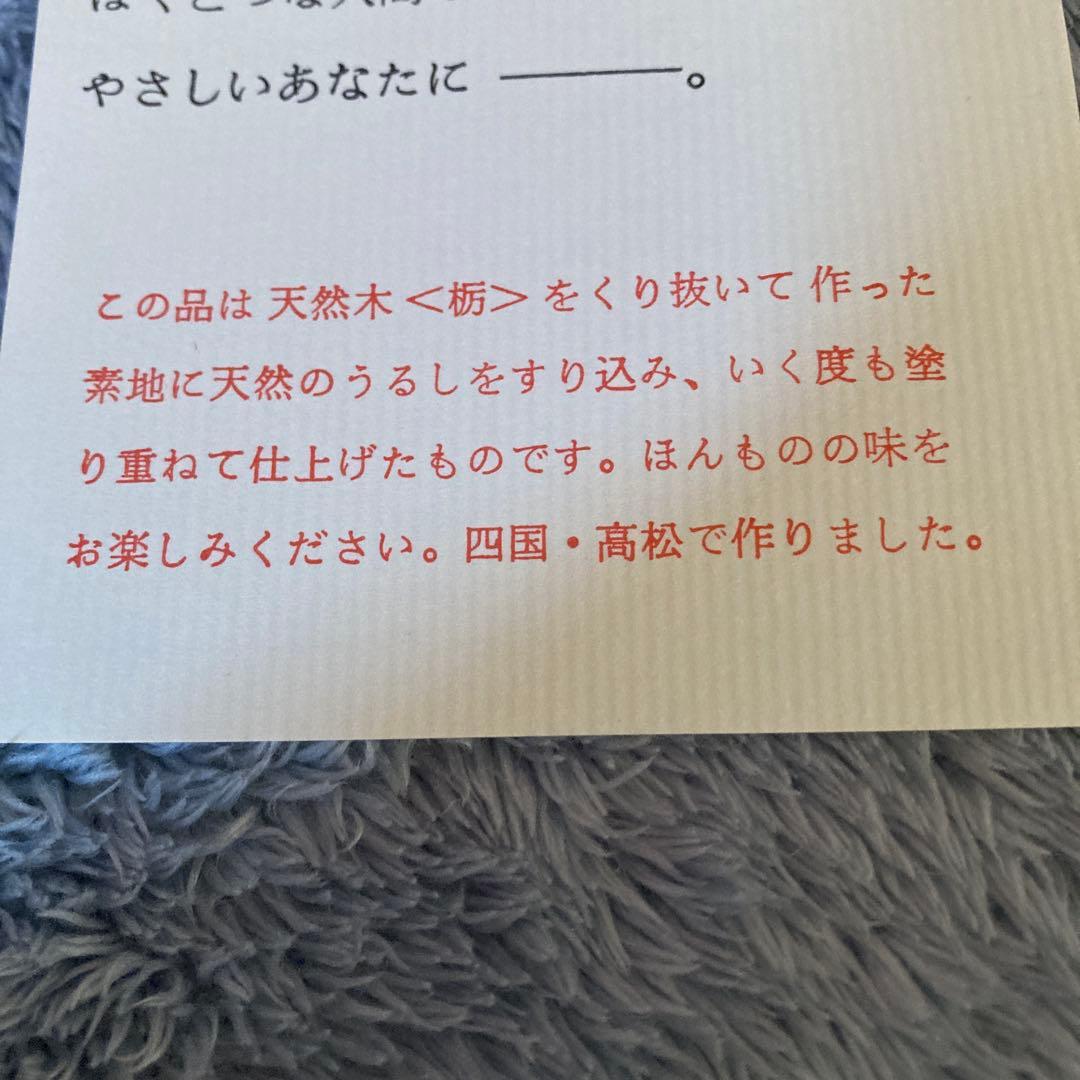 やさしいあなたに ―――。
この品は 天然木 <栃> をくり抜いて 作った
素地に天然のうるしをすり込み、いく度も塗
り重ねて仕上げたものです。ほんものの味を
お楽しみください。四国・高松で作りました。